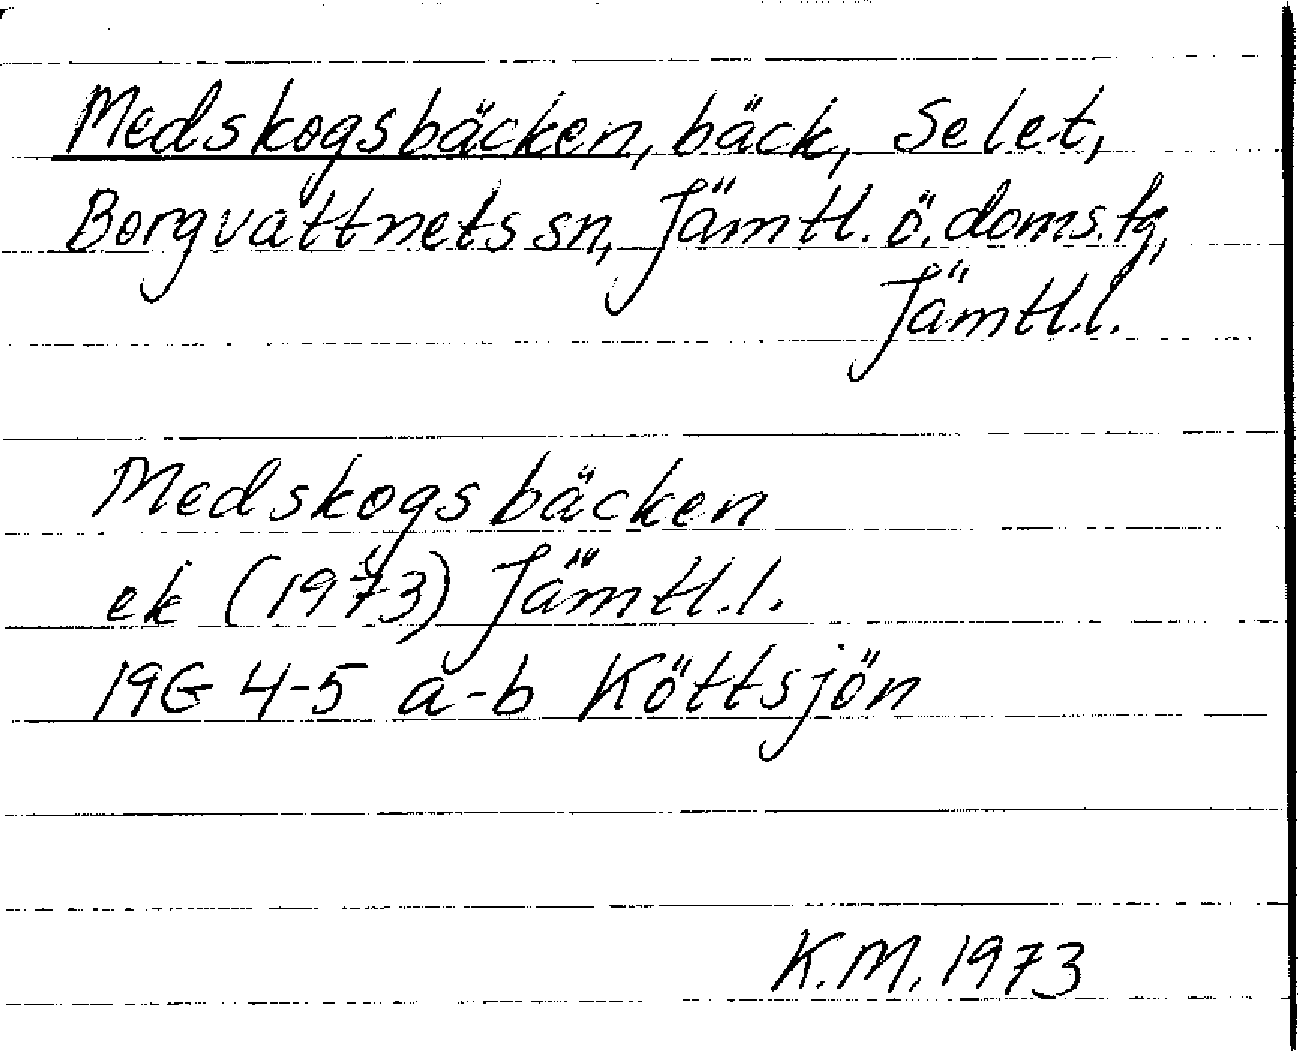 Medskogsbäcken, bäck, Selet,
Borgvattnets sn, Jämtl. ö. doms. tg,
Jämtl.l.
Medskogsbäcken
ek (1973) Jämtl.l.
19G 4-5 a-b Köttsjön
K.M. 1973